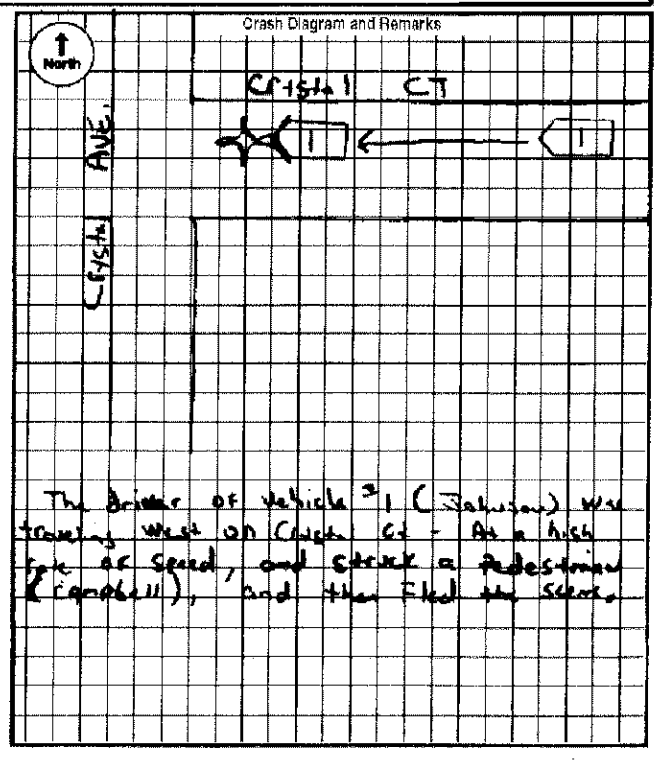 Crash Diagram and Remarks
North
Crystal CT
1 1
Crystal AVE.
The driver of vehicle #1 (Johnson) was
traveling West on Crystal Ct - At a high
rate of Speed, and struck a Pedestrian
(Campbell), and then Fled the scene.